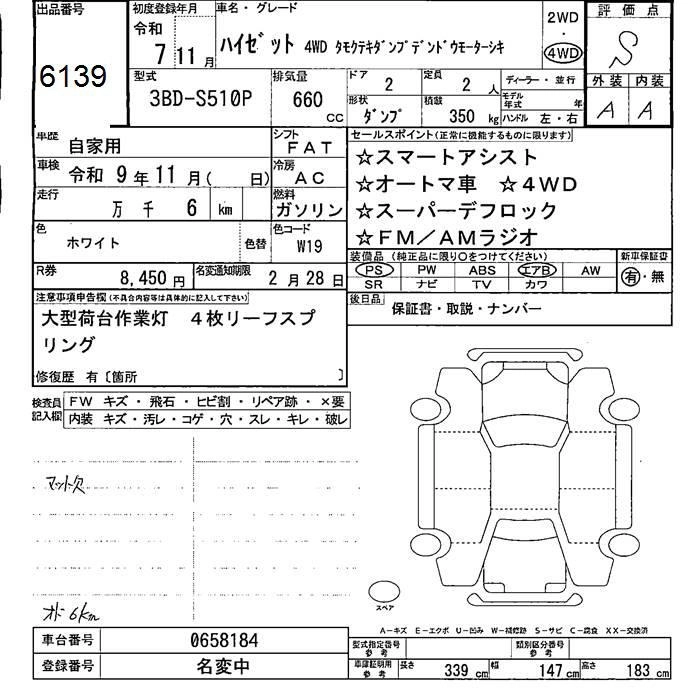 出品番号
6139
初度登録年月
令和
7 11 月
車名・グレード
ハイゼット 4WD タモクテキダンプデンドウモーターシキ
2WD
・
4WD
評価点
S
外装 内装
A A
型式
3BD-S510P
排気量
660 CC
ドア
2
定員
2 人
形状
ダンプ
積載
350 kg
ディーラー・並行
モデル年式 年
ハンドル 左・右
車歴
自家用
シフト
FAT
車検
令和 9 年 11 月( 日)
冷房
AC
走行
万 千 6 km
燃料
ガソリン
色
ホワイト
色替
色コード
W19
R券
8,450 円
名変通知期限
2 月 28 日
セールスポイント(正常に機能するものに限ります)
☆スマートアシスト
☆オートマ車 ☆4WD
☆スーパーデフロック
☆FM/AMラジオ
装備品(純正品に限り〇をつけてください)
PS PW ABS エアB AW
SR ナビ TV カワ
新車保証書
有・無
後日品
保証書・取説・ナンバー
注意事項申告欄(不具合内容等は具体的に記入して下さい)
大型荷台作業灯 4枚リーフスプ
リング
修復歴 有〔箇所 〕
検査員記入欄
FW キズ・飛石・ヒビ割・リペア跡・×要
内装 キズ・汚レ・コゲ・穴・スレ・キレ・破レ
マット欠
オド 6km
スペア
A-キズ E-エクボ U-凹み W-補修跡 S-サビ C-腐食 XX-交換済
車台番号 0658184
登録番号 名変中
型式指定番号参考
類別区分番号参考
車庫証明用参考
長さ 339 cm 幅 147 cm 高さ 183 cm